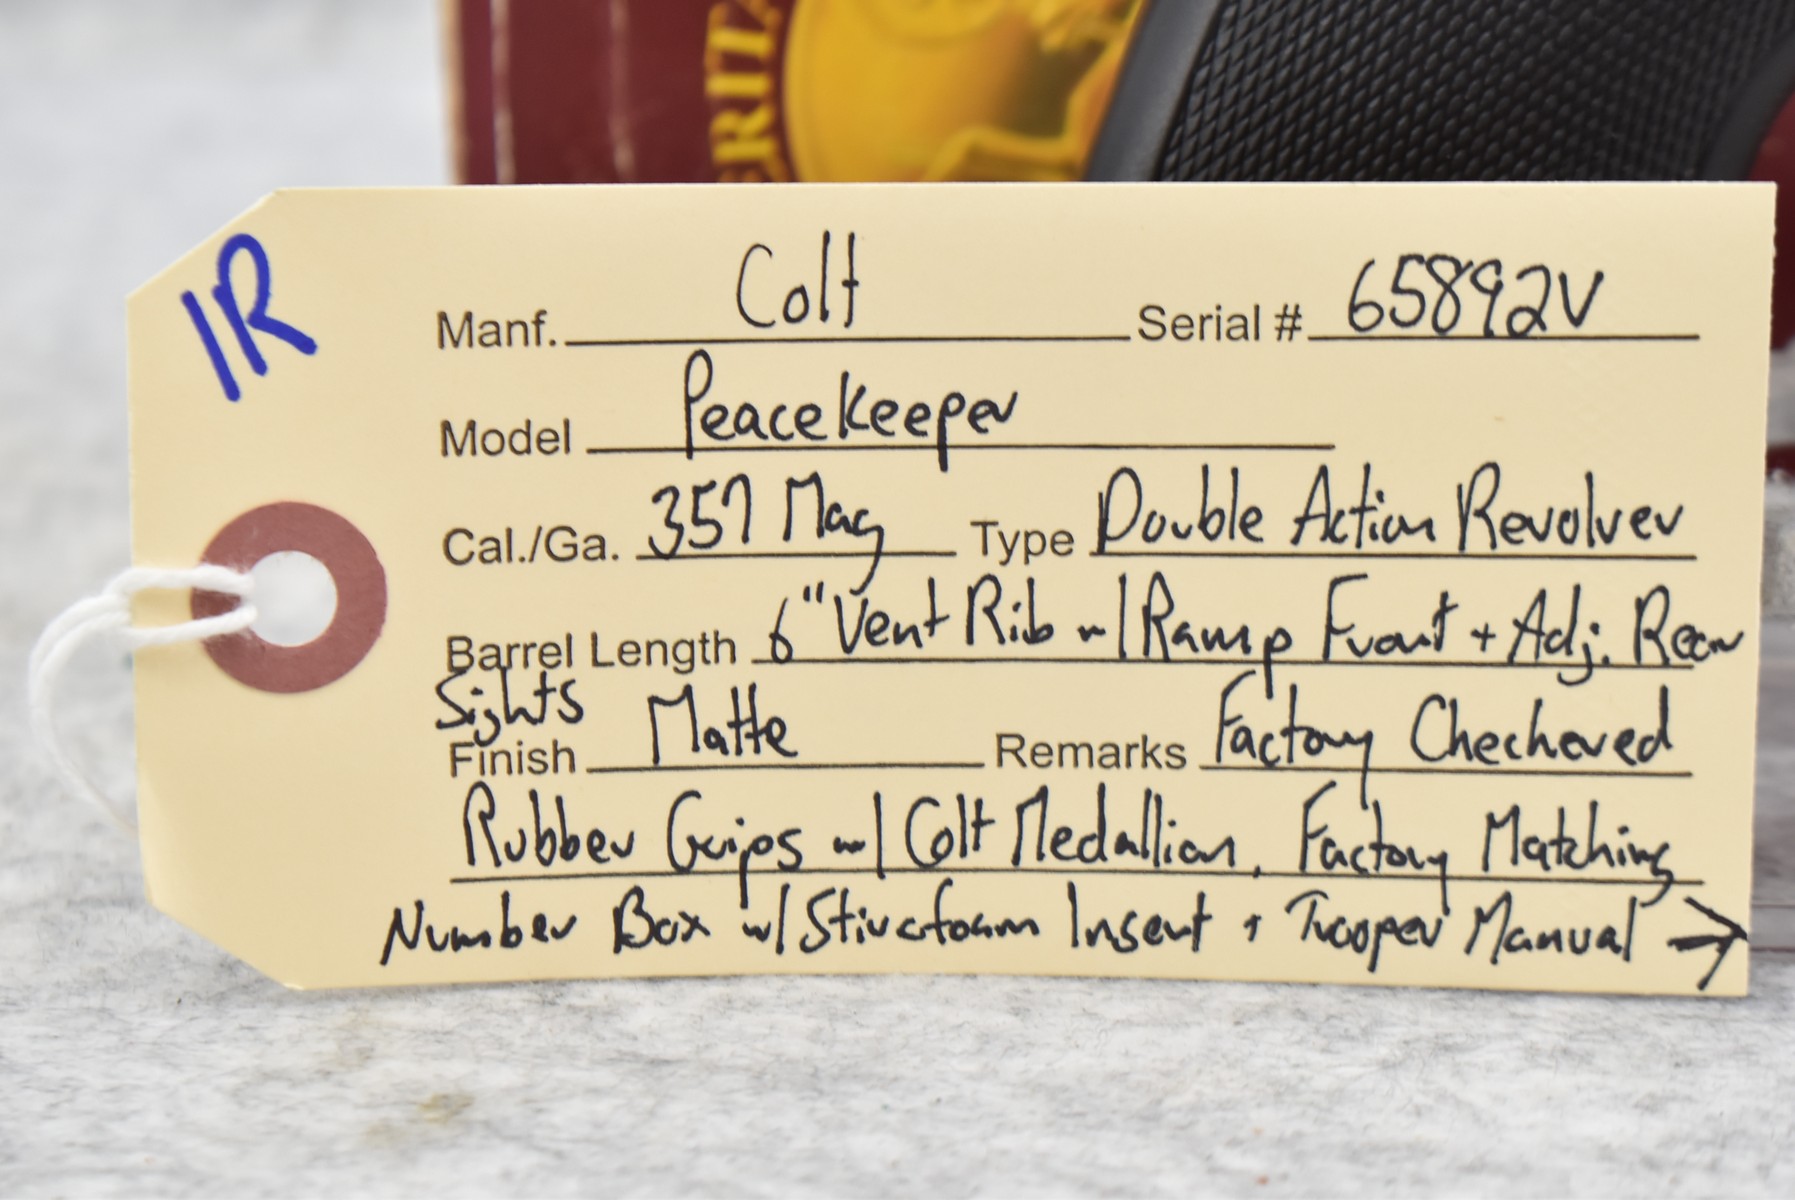 ERITA
1R
Manf. Colt Serial # 65892V
Model Peacekeeper
Cal./Ga. 357 Mag Type Double Action Revolver
Barrel Length 6" Vent Rib w/ Ramp Front + Adj. Rear
Sights
Finish Matte Remarks Factory Checkered
Rubber Grips w/ Colt Medallion, Factory Matching
Number Box w/ Stirofoam Insert + Trooper Manual →